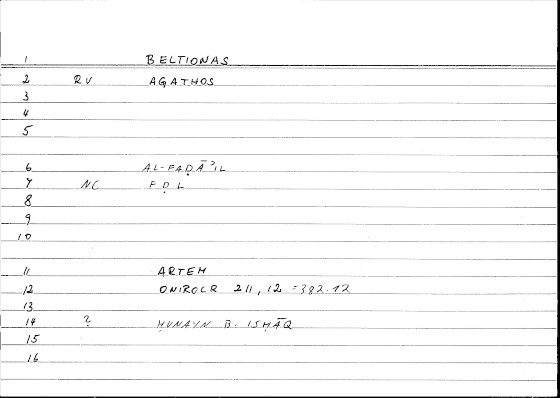 1 BELTIONAS
2 RV AGATHOS
3
4
5
6 AL-FAḌĀʾIL
7 NC FḌL
8
9
10
11 ARTEM
12 ONIROCR 211, 12 = 382.12
13
14 ? ḤUNAYN B. ISḤĀQ
15
16